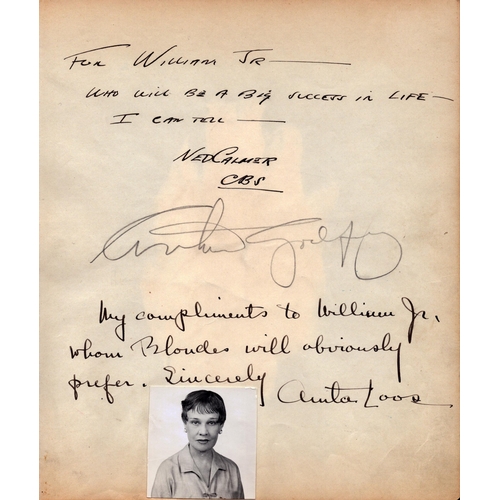 FOR WILLIAM JR —
WHO WILL BE A BIG SUCCESS IN LIFE —
I CAN TELL —
NED CALMER
CBS
Arthur Godfrey
My compliments to William Jr.,
whom Blondes will obviously
prefer. Sincerely Anita Loos